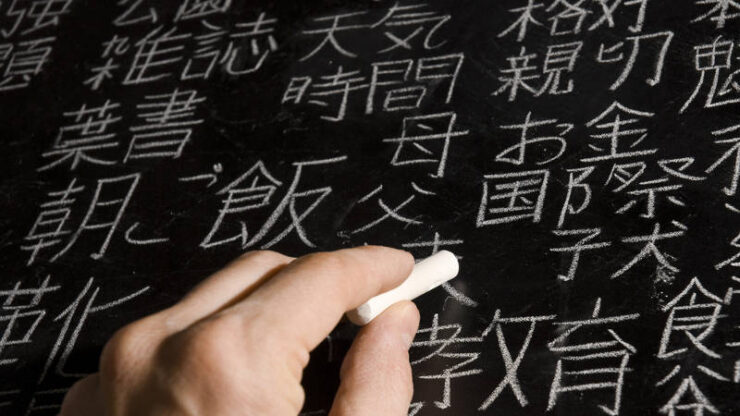 公園
頭 雑誌 天気 格好
葉書 時間 親切 魅
朝ご飯 母 お金
父 国際
化 子犬
教育 食